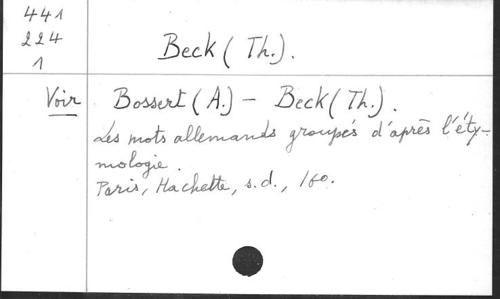 441
224
1
Beck (Th.).
Voir
Bossert (A.) – Beck (Th.).
Les mots allemands groupés d'après l'éty-
mologie.
Paris, Hachette, s.d., 160.